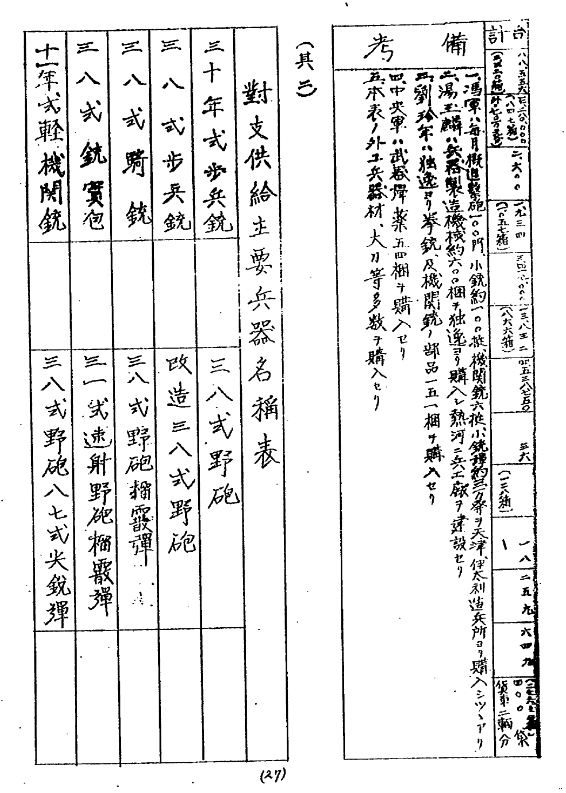 合計
二、六〇〇
一、九三四
三六
一八
二五九
六四九
貨車二輌分
備考
一、馮軍ハ毎月機迫撃砲一〇〇門、小銃約一〇〇挺、機関銃六挺、小銃弾約三万発ヲ天津伊太利造兵所ヨリ購入シツヽアリ
二、湯玉麟ハ兵器製造機械約六〇〇梱ヲ独逸ヨリ購入シ熱河ニ兵工廠ヲ建設セリ
三、劉珍年ハ独逸ヨリ拳銃及機関銃ノ部品一五一梱ヲ購入セリ
四、中央軍ハ武器弾薬五四梱ヲ購入セリ
五、本表ノ外工兵器材、大刀等多数ヲ購入セリ
(其二)
對支供給主要兵器名稱表
三十年式歩兵銃
三八式野砲
三八式歩兵銃
改造三八式野砲
三八式騎銃
三八式野砲榴霰彈
三八式銃實包
三一式速射野砲榴霰彈
十一年式軽機関銃
三八式野砲八七式尖銳彈
(27)